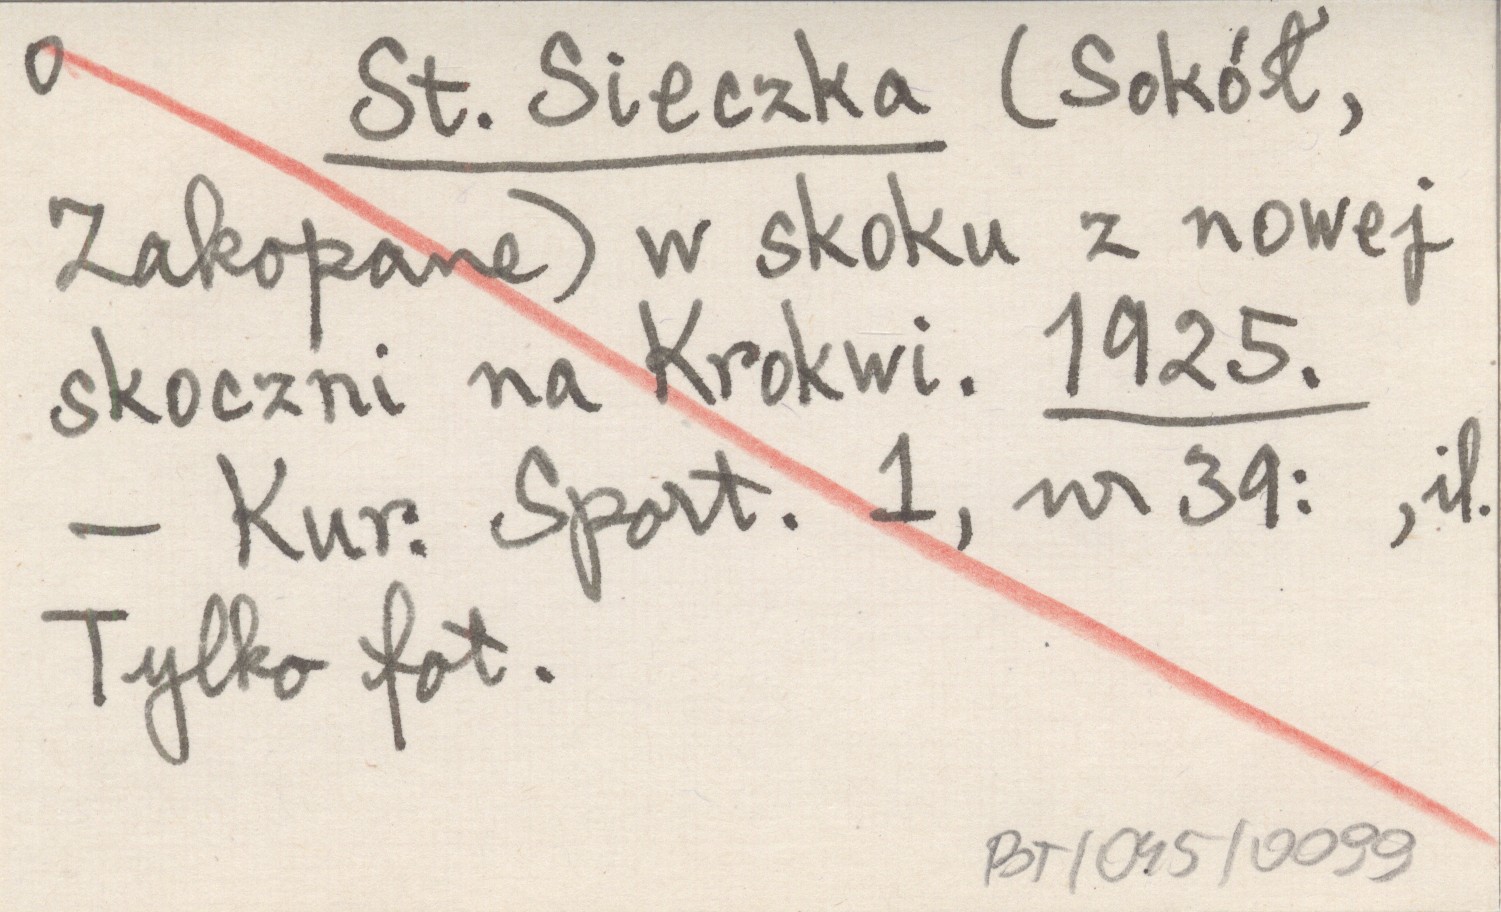 0 St. Sieczka (Sokół,
Zakopane) w skoku z nowej
skoczni na Krokwi. 1925.
— Kur. Sport. 1, nr 39: , il.
Tylko fot.
BT/045/0099